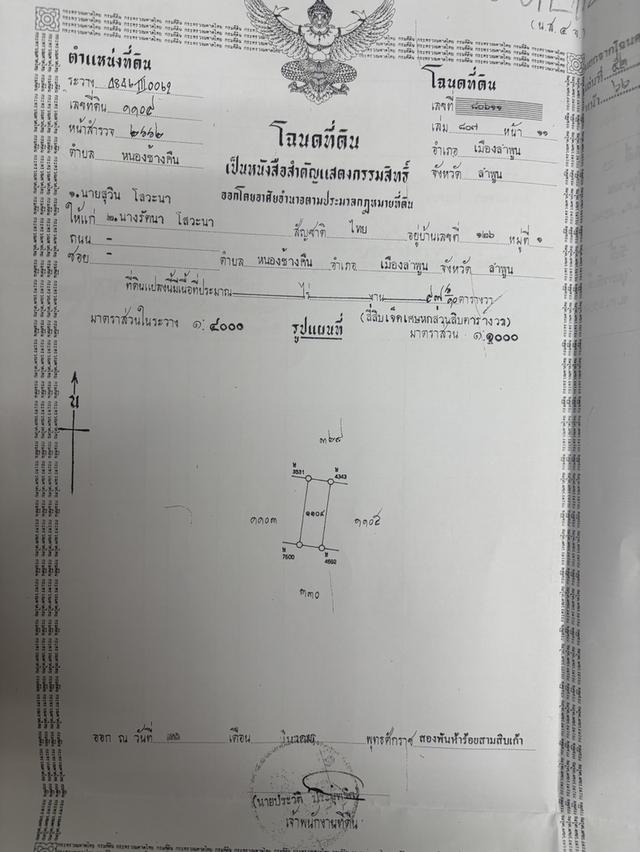 (น.ส. ๔ จ.)
ตำแหน่งที่ดิน
ระวาง
เลขที่ดิน ๑๑๐๔
หน้าสำรวจ ๒๖๖๒
ตำบล หนองช้างคืน
โฉนดที่ดิน
เลขที่
เล่ม ๘๐๗ หน้า ๑๑
อำเภอ เมืองลำพูน
จังหวัด ลำพูน
โฉนดที่ดิน
เป็นหนังสือสำคัญแสดงกรรมสิทธิ์
ออกโดยอาศัยอำนาจตามประมวลกฎหมายที่ดิน
๑.นายสุวิน โสวะนา
ให้แก่ ๒.นางรัตนา โสวะนา สัญชาติ ไทย อยู่บ้านเลขที่ ๑๒๖ หมู่ที่ ๑
ถนน -
ซอย - ตำบล หนองช้างคืน อำเภอ เมืองลำพูน จังหวัด ลำพูน
ที่ดินแปลงนี้มีเนื้อที่ประมาณ ไร่ งาน ตารางวา
มาตราส่วนในระวาง ๑:๔๐๐๐ รูปแผนที่
มาตราส่วน ๑:๑๐๐๐
น
3531 4343
๑๑๐๓ ๑๑๐๔ ๑๑๐๕
7500 4692
๓๓๐
ออก ณ วันที่ เดือน พุทธศักราช สองพันห้าร้อยสามสิบเก้า
(นายประวัติ
เจ้าพนักงานที่ดิน